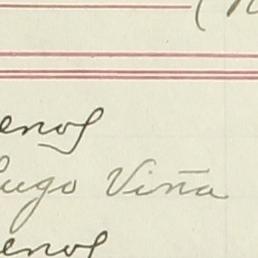 enos
ugo Viña
enos